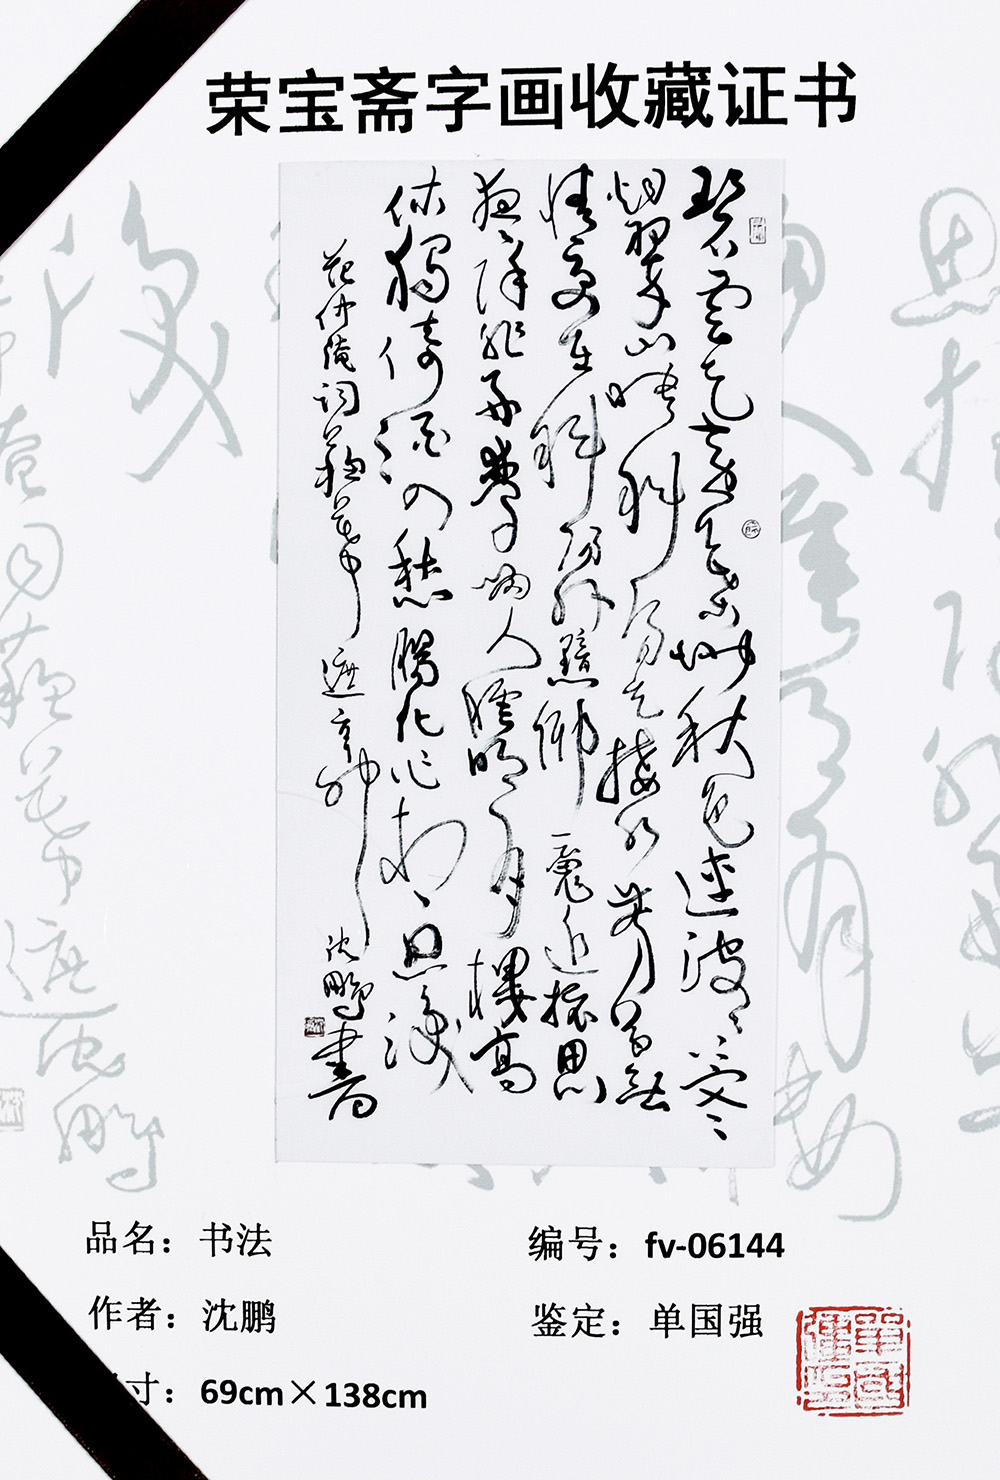 荣宝斋字画收藏证书
碧雲天黄葉地秋色連波々上寒々
烟翠山映斜陽天接水芳草無
情更在斜陽外黯鄉魂追旅思
夜々除非好夢留人睡明月樓高
休獨倚酒入愁腸化作相思淚
范仲淹詞蘇幕遮 沈鵬書
品名：书法
编号：fv-06144
作者：沈鹏
鉴定：单国强
寸：69cm×138cm